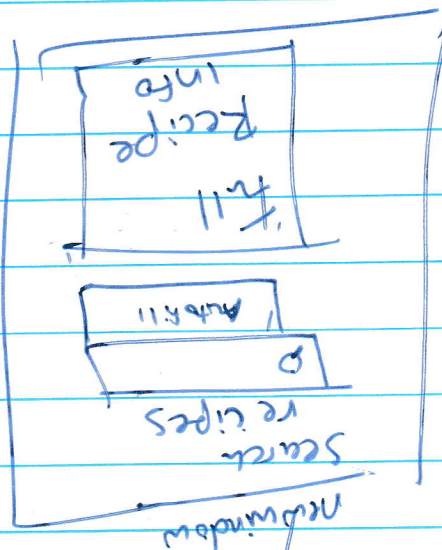 new window
search
recipes
Autofill
Full
Recipe
info